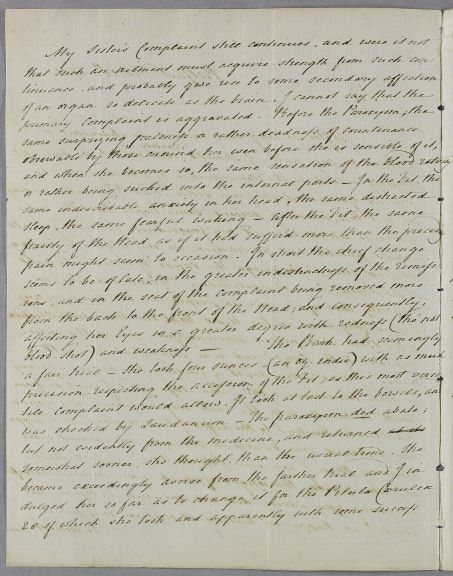 My Sister's Complaint still continues, and were it not
that such an ailment must acquire strength from such con-
tinuance, and probably give rise to some secondary affection
of an organ so delicate as the brain, I cannot say that the
primary complaint is aggravated. Before the Paroxysm, the
same surprizing paleness or rather deadness of countenance
observable by those around her even before she is sensible of it,
and when she becomes so, the same sensation of the blood rushing
or rather being sucked into the internal parts – In the Fit, the
same indescribable anxiety in her head, the same distracted
sleep, the same fearful waking – after the Fit, the same
frailty of the Head, as if it had suffered more than the preceding
pain might seem to occasion. In short the chief change
seems to be of late, in the greater indistinctness of the remiss-
ions, and in the seat of the complaint being removed more
from the back to the front of the Head, and consequently,
affecting her Eyes in a greater degree with redness (tho' not
blood shot) and weakness – The Bark had seemingly
a fair trial – She took four ounces (an oz. indies) with as much
precision respecting the accession of the Fit, as this most versa-
tile complaint would allow. It took at last to the bowels, and
was checked by Laudanum – The paroxysm did abate;
but not evidently from the medicine, and returned
somewhat sooner, she thought, than the usual time. She
became exceedingly averse from the farther trial and I in-
dulged her so far as to change it for the Pilula Cærulea
20 of which she took and apparently with some success